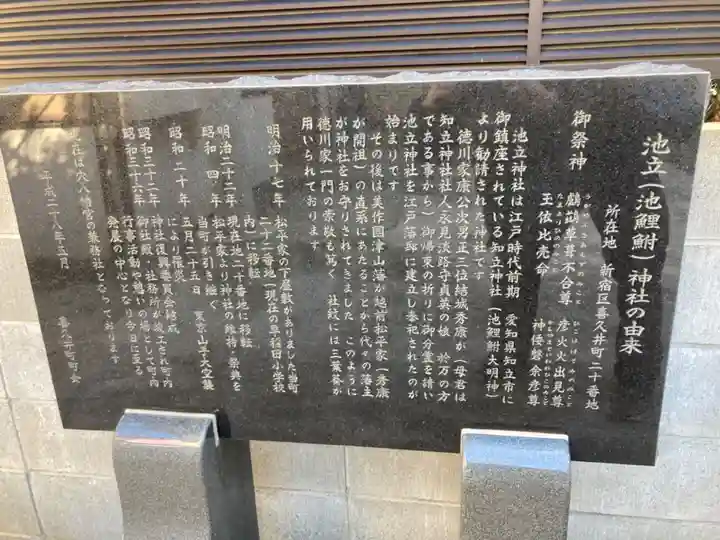 池立(池鯉鮒)神社の由来
所在地 新宿区喜久井町二十番地
御祭神
鸕鶿草葺不合尊 彦火火出見尊
玉依比売命 神倭磐余彦尊
池立神社は江戸時代前期 愛知県知立市に
御鎮座されている知立神社(池鯉鮒大明神)
より勧請された神社です
徳川家康公次男正三位結城秀康が(母君は
知立神社社人永見淡路守貞英の娘 於万の方
である事から)御帰東の折りに御分霊を請い
池立神社を江戸藩邸に建立し奉祀されたのが
始まりです
その後は美作国津山藩が越前松平家(秀康
が開祖)の直系にあたることから代々の藩主
が神社をお守りされてきました このように
徳川家一門の崇敬も篤く 社紋には三葉葵が
用いられております
明治十七年 松平家の下屋敷がありました当町
二十二番地(現在の早稲田小学校
内)に移転
明治二十二年 現在地二十番地に移転
昭和四年 松平家より神社の維持・祭典を
当町が引き継ぐ
昭和二十年 五月二十五日 東京山手大空襲
により罹災
昭和三十二年 神社復興委員会結成
昭和三十六年 御社殿・社務所が竣工され町内
行事活動や憩いの場として町内
発展の中心となり今日に至る
現在は穴八幡宮の兼務社となっております
平成二十八年五月 喜久井町町会